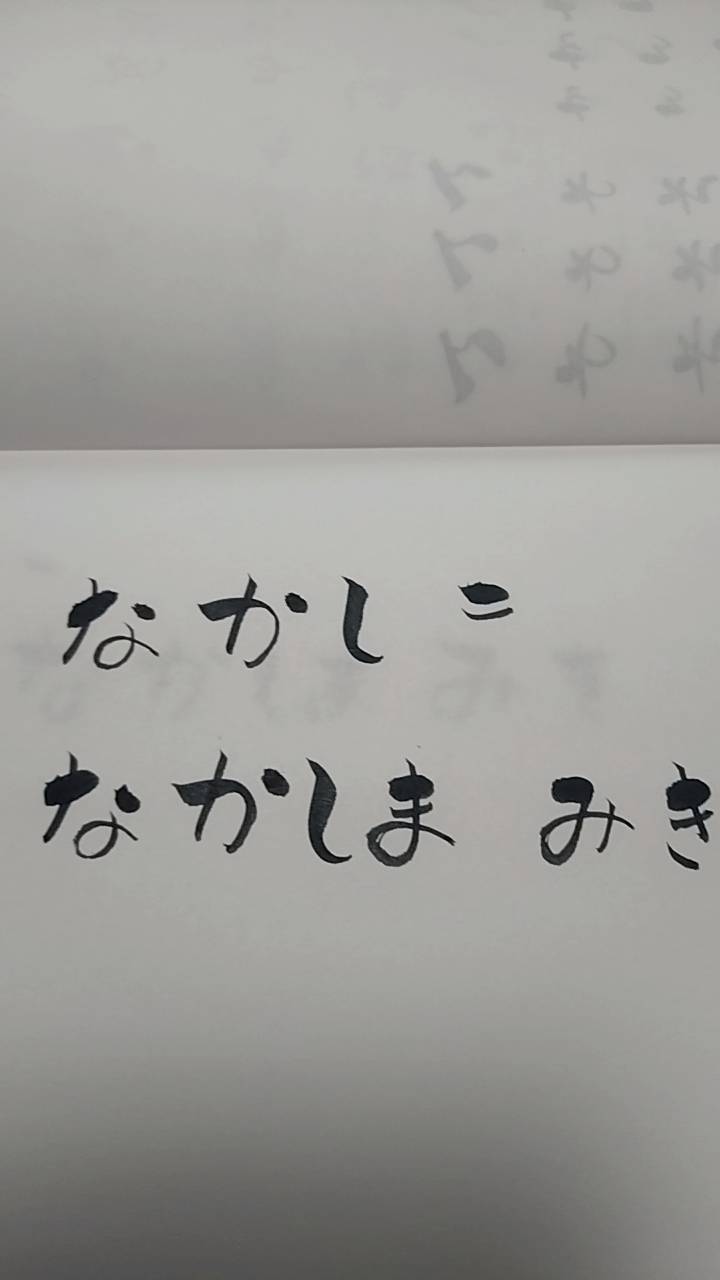 なかしこ
なかしま みき